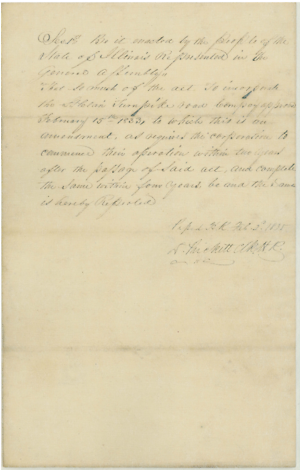 Sect 1. Be it enacted by the people of the
State of Illinois Represented in the
General Assembly
That so much of the act. To incorporate
the St Clair Turnpike road Company approved
February 13th to which this is an
amendment, as requires the corporation to
commence their operation within two years
after the passage of Said act, and complete
the Same within four years, be and the Same
is hereby Repealed
H.R. Feb